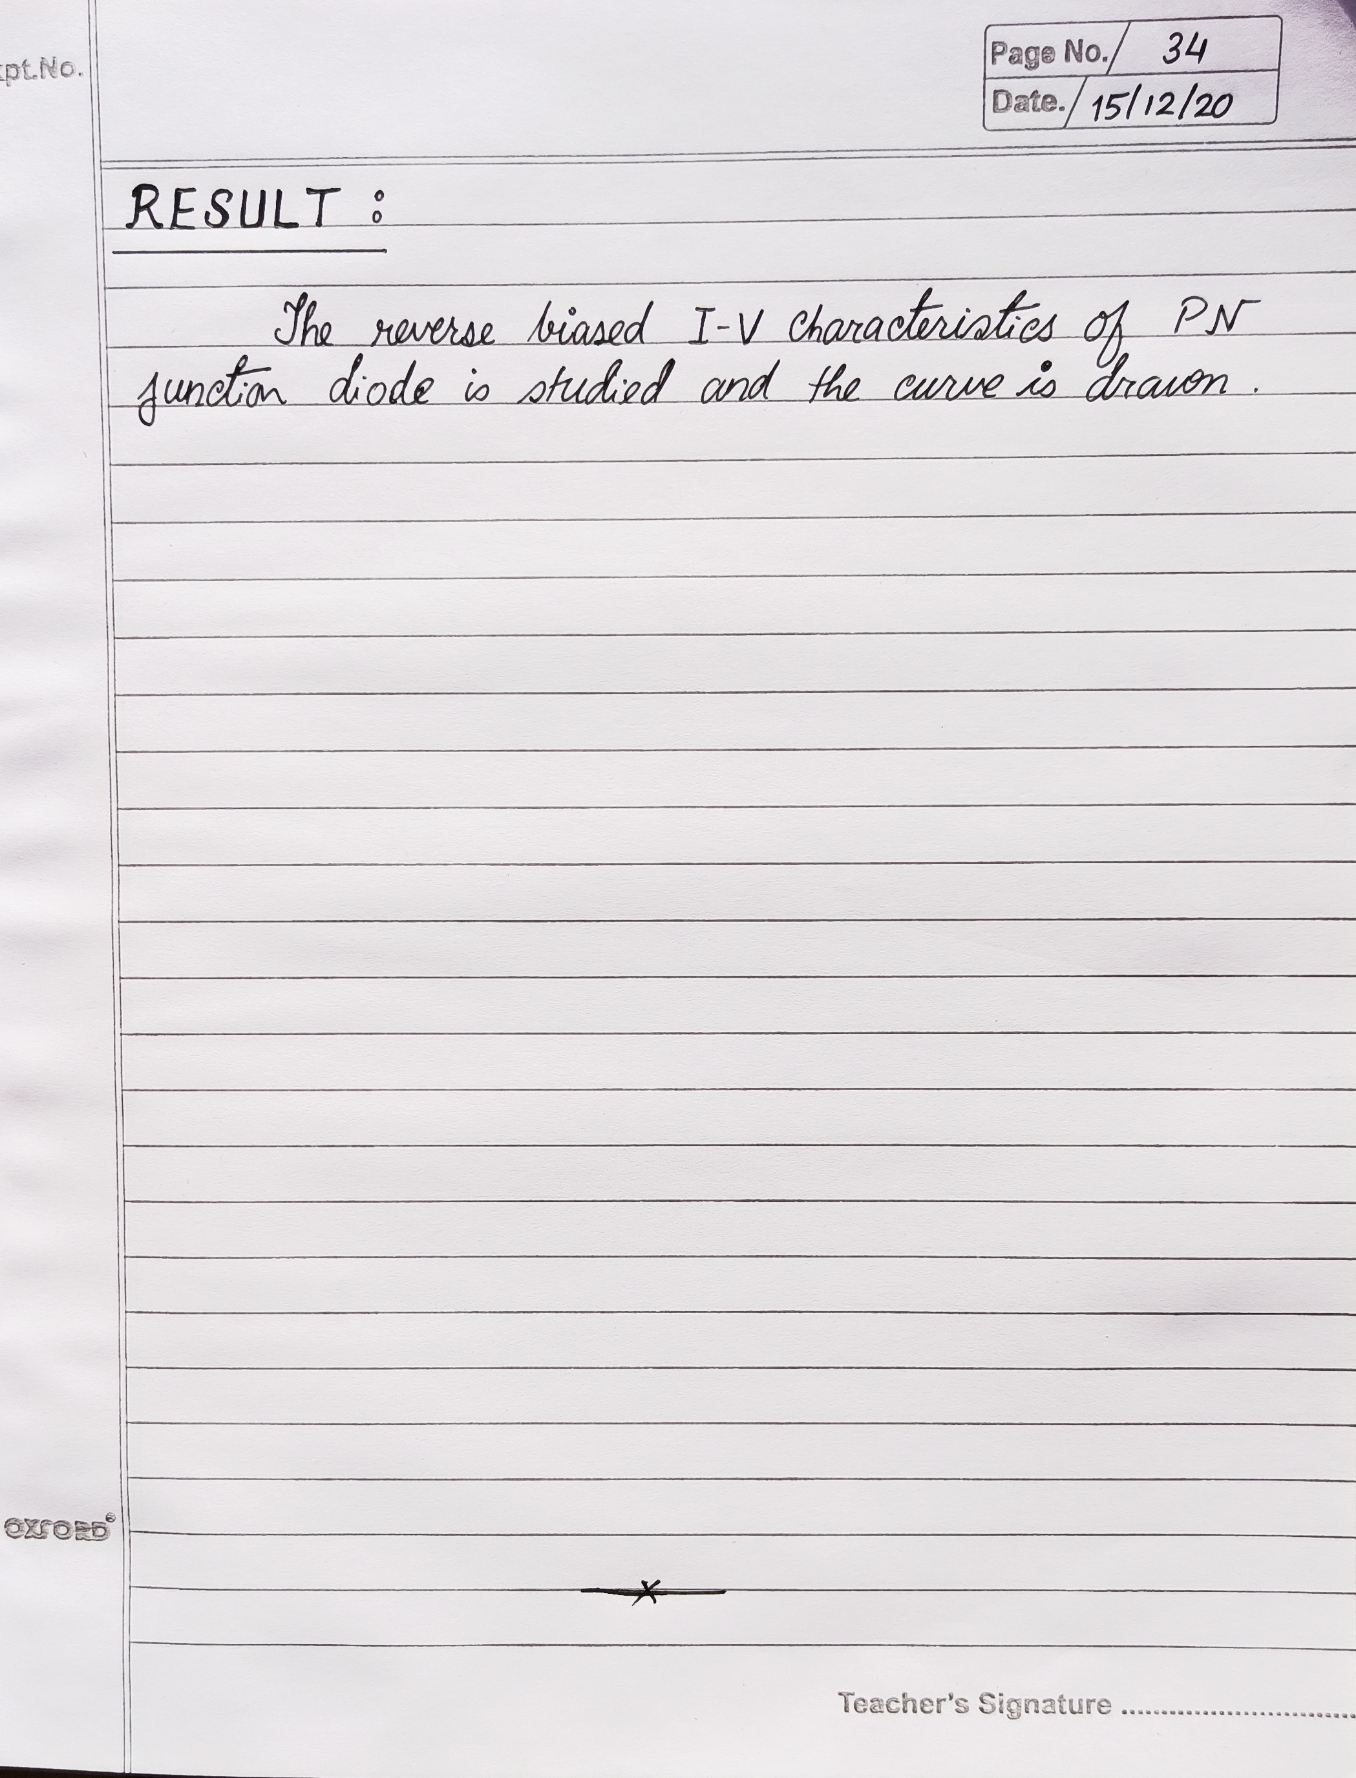 xpt.No.
Page No. 34
Date. 15/12/20
RESULT :
The reverse biased I-V characteristics of PN
junction diode is studied and the curve is drawn.
OXFORD®
Teacher's Signature ..............................